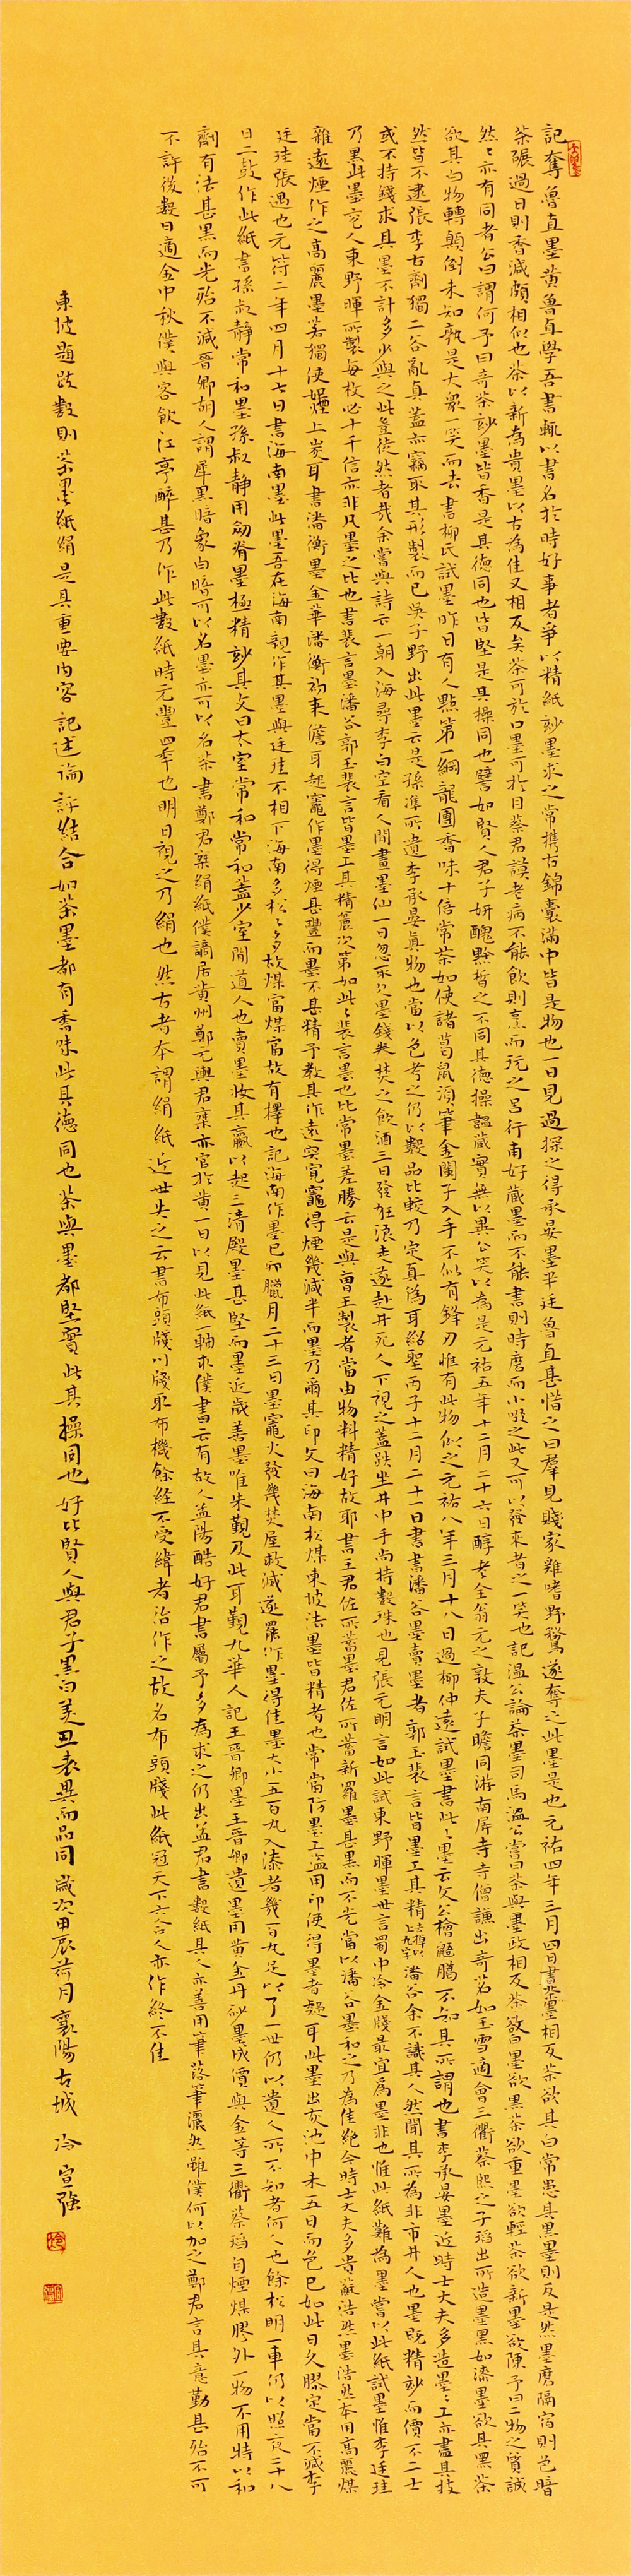 記奪魯直墨黄魯直學吾書輒以書名於時好事者爭以精紙妙墨求之常攜古錦囊滿中皆是物也一日見過探之得承晏墨半廷魯直甚惜之曰羣兒賤家雞嗜野鶩遂奪之此墨是也元祐四年三月四日書茶墨相反茶欲其白常患其黒墨則反是然墨磨隔宿則色暗
茶碾過日則香減頗相似也茶以新為貴墨以古為佳又相反矣茶可於口墨可於目蔡君謨老病不能飲則烹而玩之呂行甫好藏墨而不能書則時磨而小啜之此又可以發來者之一笑也記溫公論茶墨司馬溫公嘗曰茶與墨政相反茶欲白墨欲黒茶欲重墨欲輕茶欲新墨欲陳予曰二物之質誠
然〻亦有同者公曰謂何予曰奇茶妙墨皆香是其德同也皆堅是其操同也譬如賢人君子妍醜黔晳之不同其德操韞藏實無以異公笑以為是元祐五年十二月二十六日醇老全翁元之敦夫子瞻同游南屏寺寺僧謙出奇茗如玉雪適會三衢蔡熙之子瑫出所造墨黒如漆墨欲其黒茶
欲其白物轉顛倒未知孰是大衆一笑而去書柳氏試墨昨日有人點第一綱龍團香味十倍常茶如使諸葛鼠須筆金闌子入手不似有鋒刃惟有此物似之元祐八年三月十八日過柳仲遠試墨書此〻墨云文公檜鼶臈不知其所謂也書李承晏墨近時士大夫多造墨〻工亦盡其技
然皆不逮張李古劑獨二谷亂真蓋亦竊取其形製而已吳子野出此墨云是孫準所遺李承晏真物也當以色考之仍以數品比較乃定真偽耳紹聖丙子十二月二十一日書書潘谷墨賣墨者郭玉裴言皆墨工其精潘谷余不識其人然聞其所為非市井人也墨既精妙而價不二士
或不持錢求其墨不計多少與之此豈徒然者哉余嘗與詩云一朝入海尋李白空看人間畫墨仙一日忽取欠墨錢券焚之飲酒三日發狂浪走遂赴井死人下視之蓋趺坐井中手尚持數珠也見張元明言如此試東野暉墨世言蜀中冷金牋最宜爲墨非也惟此紙難為墨嘗以此紙試墨惟李廷珪
乃黒此墨兗人東野暉所製每枚必十千信亦非凡墨之比也書裴言墨潘谷郭玉裴言皆墨工其精麤次第如此〻裴言墨也比常墨差勝云是與曹王製者當由物料精好故耶書王君佐所蓄墨君佐所蓄新羅墨甚黒而不光當以潘谷墨和之乃為佳絶今時士大夫多貴蘇浩然墨浩然本用高麗煤
雜遠煙作之高麗墨若獨使如煙上炭耳書潘衡墨金華潘衡初來儋耳起竈作墨得煙甚豐而墨不甚精予教其作遠突寬竈得煙幾減半而墨乃爾其印文曰海南松煤東坡法墨皆精者也常當防墨工盜用印使得墨者疑耳此墨出灰池中未五日而色已如此日久膠定當不減李
廷珪張遇也元符二年四月十七日書海南墨此墨吾在海南親作其墨與廷珪不相下海南多松〻多故煤富煤富故有擇也記海南作墨己卯臘月二十三日墨竈火發幾焚屋救滅遂罷作墨得佳墨大小五百丸入漆者幾百丸足以了一世仍以遺人所不知者何人也餘松明一車仍以照夜二十八
日二鼓作此紙書孫叔靜常和墨孫叔靜用劒脊墨極精妙其文曰太室常和常和蓋少室間道人也賣墨收其贏以起三清殿墨甚堅而墨近歲善墨唯朱覲及此耳覲九華人記王晉卿墨王晉卿遺墨用黄金丹砂墨成價與金等三衢蔡瑫自煙煤膠外一物不用特以和
劑有法甚黒而光殆不減晉卿胡人謂犀黒暗象白暗可以名墨亦可以名茶書鄭君乘絹紙僕謫居黄州鄭元輿君乘亦官於黄一日以見此紙一軸求僕書云有故人孟陽酷好君書屬予多為求之仍出孟君書數紙其人亦善用筆落筆灑然雖僕何以加之鄭君言其意勤甚殆不可
不許後數日適金中秋僕與客飲江亭醉甚乃作此數紙時元豐四年也明日視之乃絹也然古者本謂絹紙近世失之云書布頭牋川牋取布機餘經不受緯者治作之故名布頭牋此紙冠天下六合人亦作終不佳
東坡題跋數則茶墨紙絹是其重要内容記述論評結合如茶墨都有香味此其德同也茶與墨都堅實此其操同也好比賢人與君子黑白美丑表異而品同歲次甲辰荷月襄陽古城 冷宣強